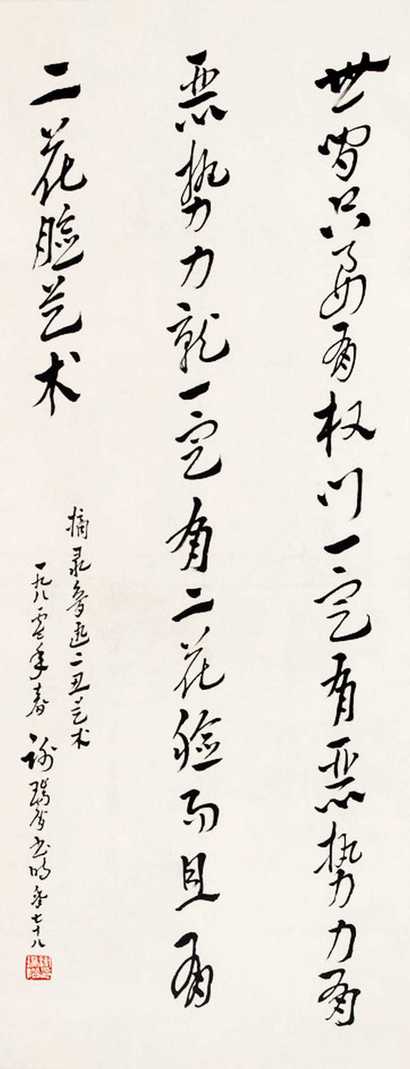 世间只要有权门一定有恶势力有
恶势力就一定有二花脸而且有
二花脸艺术
摘录鲁迅二丑艺术
一九八零年春
谢瑞阶书时年七十八